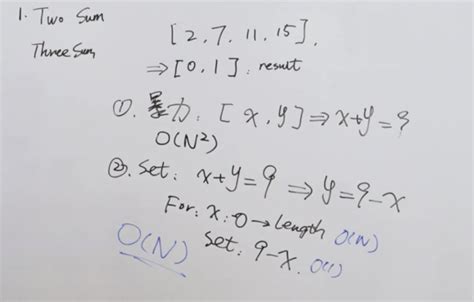 1. Two Sum
[2, 7, 11, 15],
Three Sum,
⇒ [0, 1] : result
①. 暴力: [x, y] ⇒ x+y=9
O(N²)
②. Set: x+y=9 ⇒ y=9-x
For: x: 0 → Length O(N)
Set: 9-x. O(1)
O(N)